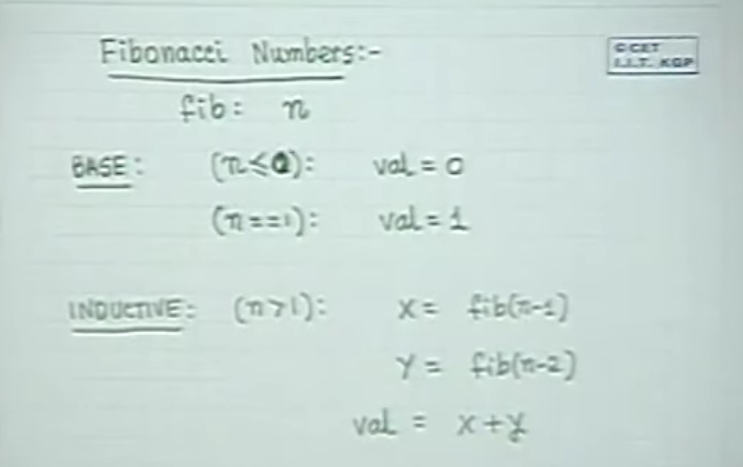 Fibonacci Numbers:-
© CET
I.I.T. KGP
fib: n
BASE: (n≤0): val = 0
(n==1): val = 1
INDUCTIVE: (n>1): x = fib(n-1)
y = fib(n-2)
val = x+y